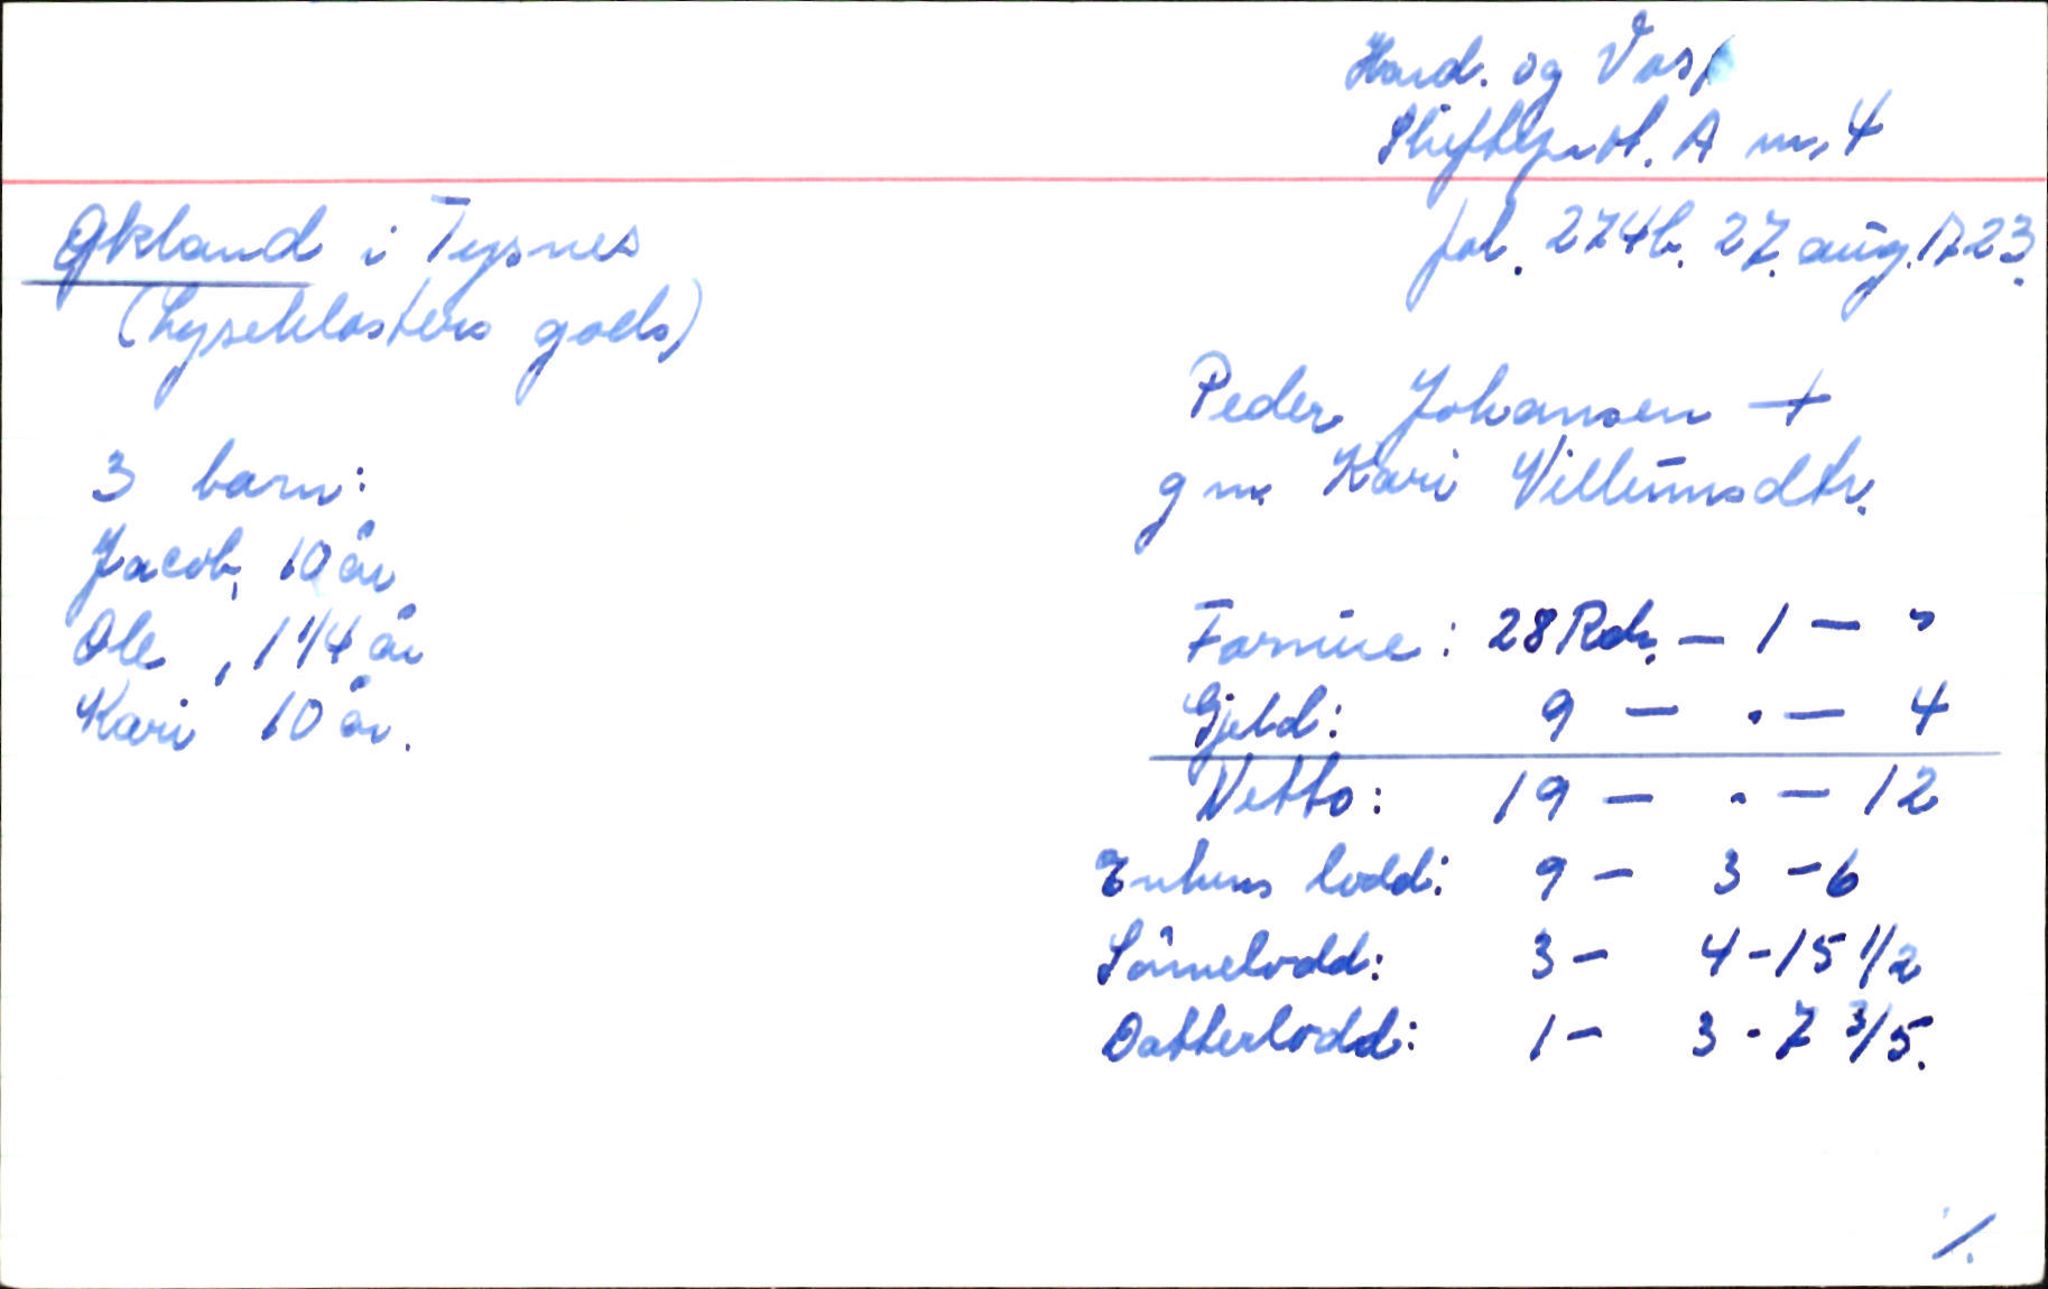 Hard. og Voss
Skifteprot. A nr. 4
fol. 274b. 27. aug. 1723.
Økland i Tysnes
(Lyseklosters gods)
Peder Johansen +
gm. Kari Villumsdtr.
3 barn:
Jacob, 10 år
Ole, 1 1/4 år
Kari 10 år.
Formue: 28 Rdr. - 1 - "
Gjeld: 9 - . - 4
Netto: 19 - . - 12
Enkens lodd: 9 - 3 - 6
Sönnelodd: 3 - 4 - 15 1/2
Datterlodd: 1 - 3 - 7 3/5.
./.